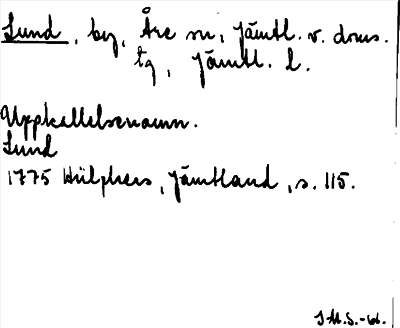 Lund, by, Åre sn, Jämtl. v. doms.
tg, Jämtl. l.
Uppkallelsenamn.
Lund
1775 Hülphers, Jämtland, s. 115.
J.M.S.-66.